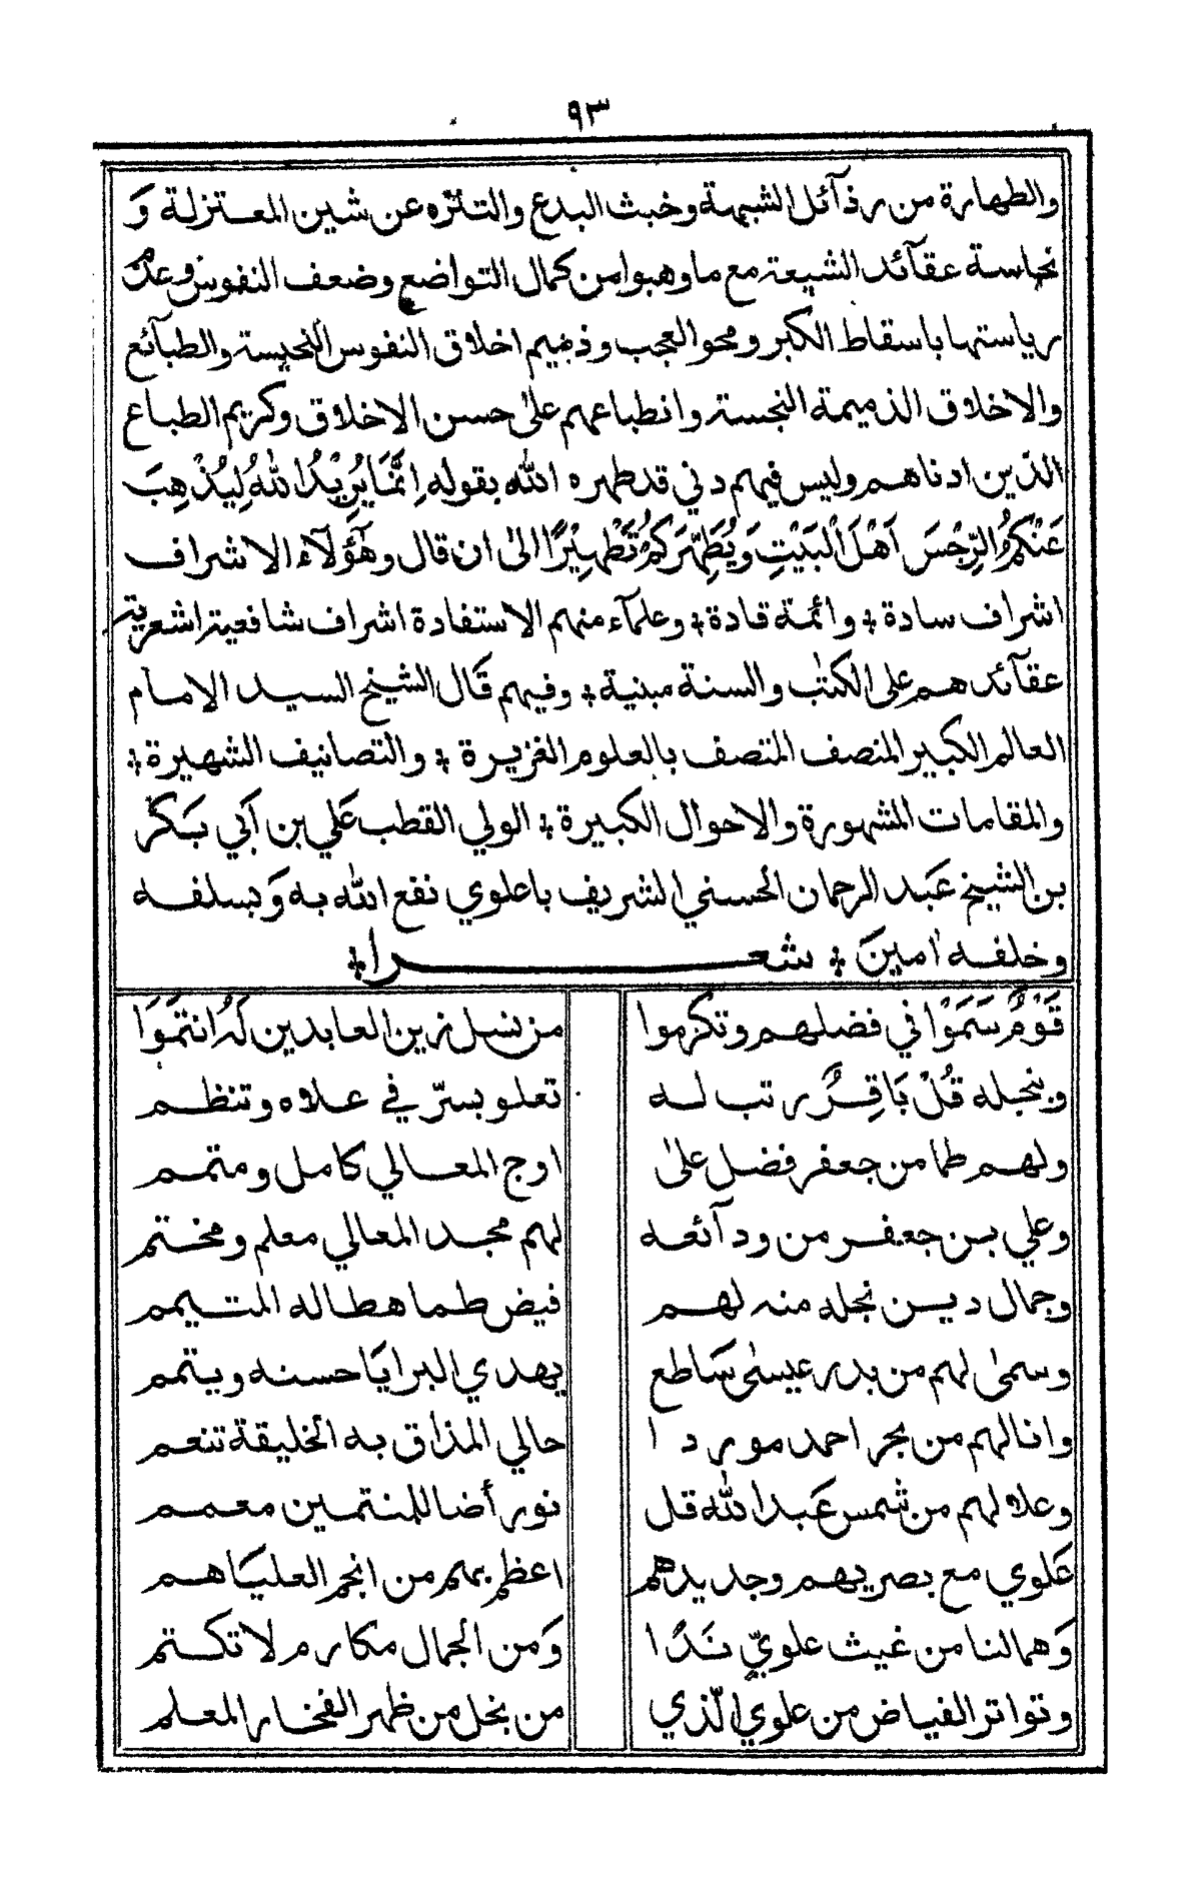 ٩٣
والطهارة من رذآئل الشبهة وخبث البدع والتنزه عن شين المعتزلة وَ
نجاسة عقآئد الشيعة مع ما وهبوا من كمال التواضع وضعف النفوس وعدم
رياستها باسقاط الكبر ومحو العجب وذميم اخلاق النفوس النحيسة والطبآئع
والاخلاق الذميمة النجسة وانطباعهم على حسن الاخلاق وكريم الطباع
الذين ادناهم وليس فيهم دني قد طهره الله بقوله اِنَّمَا يُرِيْدُ اللهُ لِيُذْهِبَ
عَنْكُمُ الرِّجْسَ اَهْلَ الْبَيْتِ وَيُطَهِّرَكُمْ تَطْهِيْرًا الى ان قال وهٰؤُلَآء الاشراف
اشراف سادة ؞ وائمة قادة ؞ وعلمآء منهم الاستفادة اشراف شافعية اشعرية
عقآئدهم على الكتٰب والسنة مبنية ؞ وفيهم قَال الشيخ السيد الامام
العالم الكبير المنصف المتصف بالعلوم الغزيرة ؞ والتصانيف الشهيرة ؞
والمقامات المشهورة والاحوال الكبيرة ؞ الولي القطب عَلي بن اَبي بَكر
بن الشيخ عَبد الرحمان الحسني الشريف باعلوي نفع الله به وَبسلفه
وخلفه اٰمينَ ؞ شعــــرا ؞
قَوْمٌ سَمَوْا في فضلهم وتكرموا
من نسل زين العابدين لَهُ انتَمَوَا
وبنجله قُلْ بَاقِرٌ رتب له
تعلو بسرّ في علاه وتنظم
ولهم طما من جعفر فضل علىٰ
اوج المعالي كامل ومتمم
وعلي بن جعفر من ودآئعه
لهم مجد المعالي معلم ومختم
وجمال دين نجله منه لهم
فيض طما هطاله المتيمم
وسمىٰ لهم من بدر عيسىٰ سَاطع
يهدي البرايَا حسنه ويتمم
وانالهم من بحر احمد موردا
حالي المذاق به الخليقة تنعم
وعلا لهم من شمس عَبد الله قل
نور أضا للمنتمين معمم
عَلوي مع بصريهم وجديدهم
اعظم بهم من انجم العليَا هم
وَهمالنا من غيث علويّ نَدًا
وَمن الجمال مكارم لا تكتم
وتواتر الفياض من علوي الّذي
من نجل من ظهر الفخار المعلم